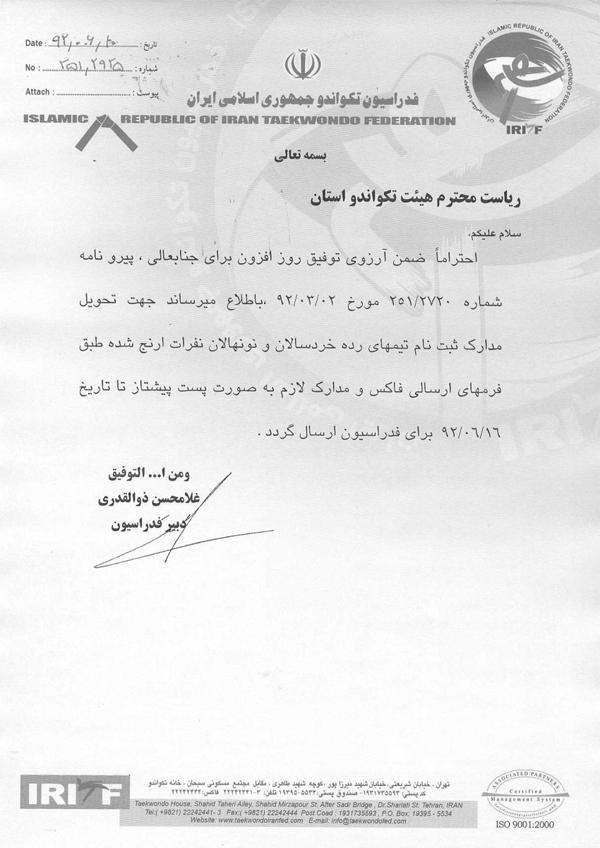 Date : ۹۲,۰۶,۲۰ تاریخ:
No : ۲۵۱,۲۹۲۵ شماره:
Attach : پیوست:
ISLAMIC REPUBLIC OF IRAN TAEKWONDO FEDERATION
IRITF
فدراسیون تکواندو جمهوری اسلامی ایران
ISLAMIC REPUBLIC OF IRAN TAEKWONDO FEDERATION
بسمه تعالی
ریاست محترم هیئت تکواندو استان
سلام علیکم،
احتراماً ضمن آرزوی توفیق روز افزون برای جنابعالی ، پیرو نامه
شماره ۲۵۱/۲۷۲۰ مورخ ۹۲/۰۳/۰۲ ،باطلاع میرساند جهت تحویل
مدارک ثبت نام تیمهای رده خردسالان و نونهالان نفرات ارنج شده طبق
فرمهای ارسالی فاکس و مدارک لازم به صورت پست پیشتاز تا تاریخ
۹۲/۰۶/۱۶ برای فدراسیون ارسال گردد .
ومن ا... التوفیق
غلامحسن ذوالقدری
دبیر فدراسیون
IRITF
تهران ، خیابان شریعتی، خیابان شهید میرزا پور ،کوچه شهید طاهری ، مقابل مجتمع مسکونی سبحان ، خانه تکواندو
کد پستی: ۱۹۳۱۷۳۵۵۹۳ -صندوق پستی: ۵۵۳۴-۱۹۳۹۵ تلفن: ۳-۲۲۲۴۲۴۴۱ فاکس: ۲۲۲۴۲۴۴۴
Taekwondo House, Shahid Taheri Alley, Shahid Mirzapour St, After Sadr Bridge , Dr.Shariati St. Tehran, IRAN
Tel:( +9821) 22242441- 3 Fax:( +9821) 22242444 Post Coad : 1931735593 , P.O. Box: 19395 - 5534
Website: www.taekwondoiranfed.com E-mail: info@taekwondofed.com
ASSOCIATED PARTNERS
Certified
Management System
ISO 9001:2000